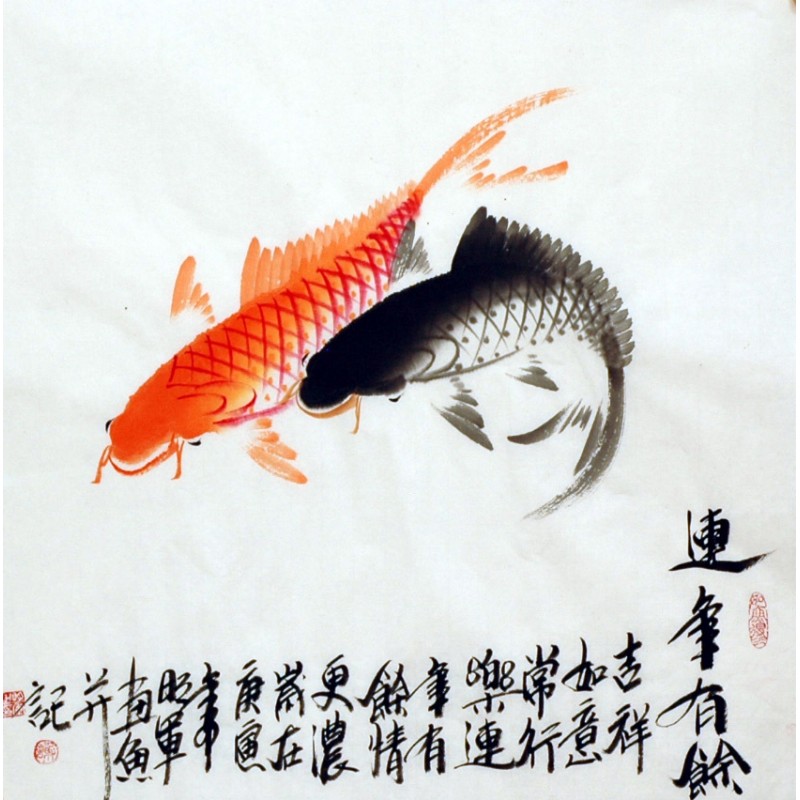 連年有餘
吉祥
如意
常行
樂連
年有
餘情
更濃
歲在
庚寅
年
軍
畫魚
并
記